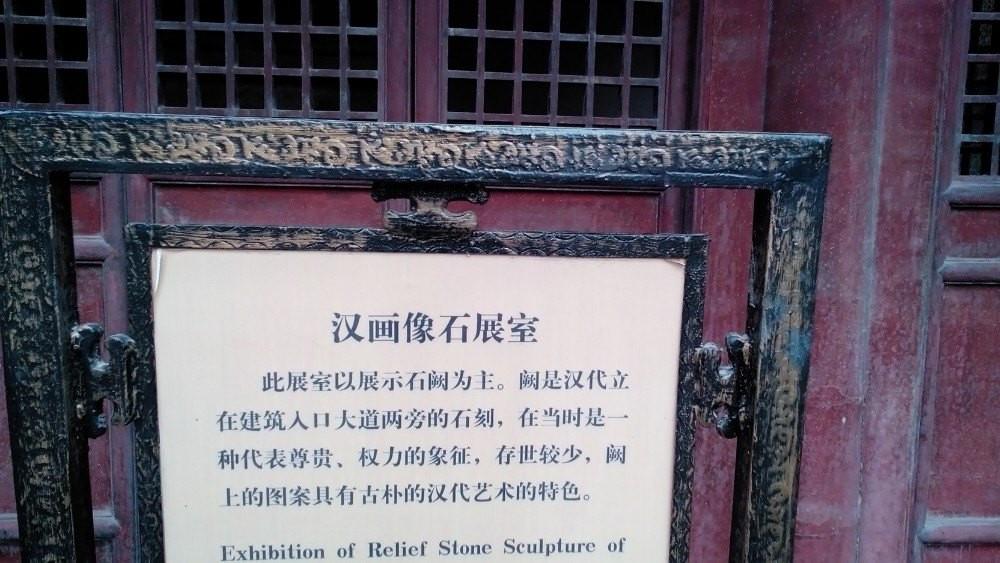 汉画像石展室
此展室以展示石阙为主。阙是汉代立
在建筑入口大道两旁的石刻，在当时是一
种代表尊贵、权力的象征，存世较少，阙
上的图案具有古朴的汉代艺术的特色。
Exhibition of Relief Stone Sculpture of